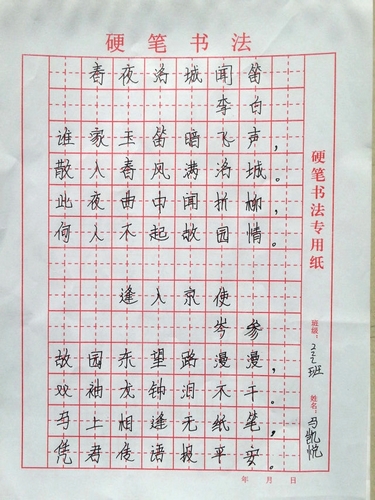 硬笔书法
春夜洛城闻笛
李白
谁家玉笛暗飞声，
散入春风满洛城。
此夜曲中闻折柳，
何人不起故园情。
逢入京使
岑参
故园东望路漫漫，
双袖龙钟泪不干。
马上相逢无纸笔，
凭君传语报平安。
年 月 日
硬笔书法专用纸
班级：
班
姓名：马凯悦